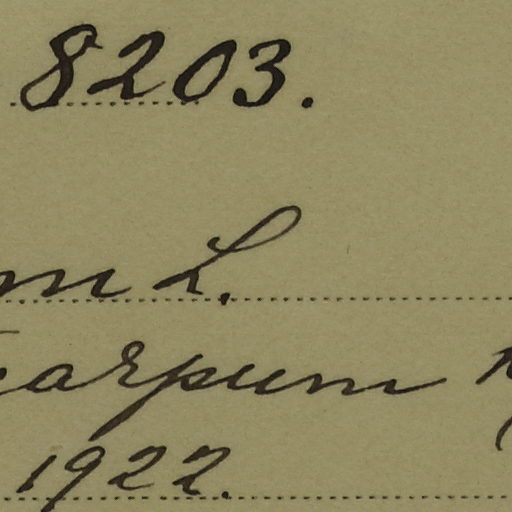 8203.
m L.
carpum
1922.